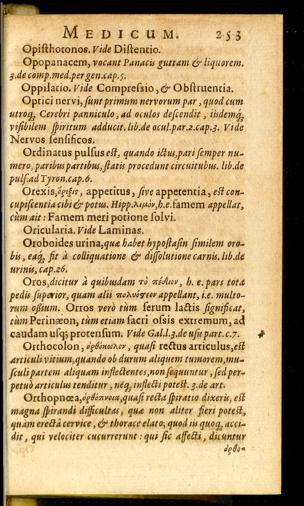 MEDICUM. 253
Opiſthotonos. Vide Diſtentio.
Opopanacem, vocant Panacis guttam & liquorem.
3.de comp.med.per gen.cap.5.
Oppilatio. Vide Compreſsio, & Obſtruentia.
Optici nervi, ſunt primum nervorum par, quod cum
utroq; Cerebri panniculo, ad oculos deſcendit, iisdemq;
viſibilem ſpiritum adducit. lib.de ocul.par.2.cap.3. Vide
Nervos ſenſificos.
Ordinatus pulsus est, quando ictus, pari ſemper nu-
mero, paribus partibus, ſtatis procedunt circuitubus. lib.de
pulſ.ad Tyron.cap.6.
Orexis, ὄρεξις, appetitus, ſive appetentia, est con-
cupiſcentia cibi & potus. Hipp. λιμὸν, h.e. famem appellat,
cùm ait: Famem meri potione ſolvi.
Oricularia. Vide Laminas.
Oroboides urina, quæ habet hypoſtaſin ſimilem oro-
bis, eaq; fit à colliquatione & diſſolutione carnis. lib.de
urinis, cap.26.
Oros, dicitur à quibusdam τὸ πέδιον, h. e. pars tota
pedis ſuperior, quam alii appellant, i.e. multo-
rum oſſium. Orros verò tùm ſerum lactis ſignificat,
tùm Perinæon, tùm etiam ſacri oſsis extremum, ad
caudam uſq; protenſum. Vide Gal.l.3.de uſu part.c.7.
Orthocolon, ὀρθόκωλον, quaſi rectus articulus, est
articuli vitium, quando ob durum aliquem tumorem, mu-
ſculi partem aliquam inflectentes, non ſequuntur, ſed per-
petuò articulus tenditur, neq; inflecti potest. 3.de art.
Orthopnœa, ὀρθόπνοια, quaſi recta ſpiratio dixeris, est
magna ſpirandi difficultas, qua non aliter fieri potest,
quàm erectâ cervice, & thorace elato; quod iis quoq; acci-
dit, qui velociter cucurrerunt: qui ſic affecti, dicuntur
ὀρθο-